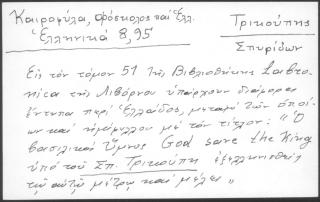 Καιροφύλα, Φόσκολος καὶ Ἑλλ.
Τρικούπης
Ἑλληνικά 8,95
Σπυρίδων
Εἰς τὸν τόμον 51 τῆς Βιβλιοθήκης Labro-
nica τῆς Λιβόρνου ὑπάρχουν διάφορα
ἔντυπα περὶ Ἑλλάδος, μεταξὺ τῶν ὁποί-
ων καὶ μὲ τὸν τίτλον: "Ὁ
βασιλικὸς Ὕμνος God save the King
ὑπὸ τοῦ Σπ. Τρικούπη ἐξελληνισθεὶς
τῷ αὐτῷ μέτρῳ καὶ μέλει"